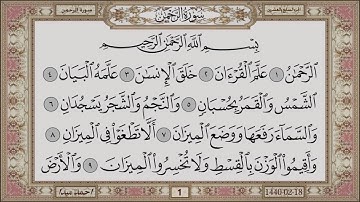 سورة الرحمن
الجزء السابع والعشرون
سُورَةُ الرَّحْمَٰن
بِسْمِ اللَّهِ الرَّحْمَٰنِ الرَّحِيمِ
الرَّحْمَٰنُ ١ عَلَّمَ الْقُرْءَانَ ٢ خَلَقَ الْإِنسَٰنَ ٣ عَلَّمَهُ الْبَيَانَ ٤
الشَّمْسُ وَالْقَمَرُ بِحُسْبَانٍ ٥ وَالنَّجْمُ وَالشَّجَرُ يَسْجُدَانِ ٦
وَالسَّمَاءَ رَفَعَهَا وَوَضَعَ الْمِيزَانَ ٧ أَلَّا تَطْغَوْا فِي الْمِيزَانِ ٨
وَأَقِيمُوا الْوَزْنَ بِالْقِسْطِ وَلَا تُخْسِرُوا الْمِيزَانَ ٩ وَالْأَرْضَ
1
1440-02-18